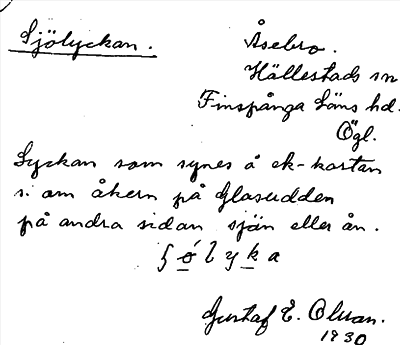 Sjölyckan.
Åsebro.
Hällestads sn
Finspånga läns hd.
Ögl.
Lyckan som synes å ek-kartan
s. om åkern på Glasudden
på andra sidan sjön eller ån.
Gustaf E. Olsson.
1930